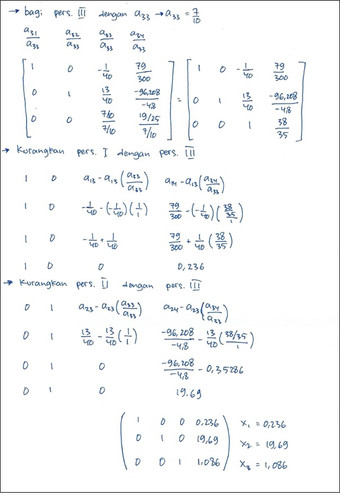 → bagi pers. III dengan a33 → a33 = 7/10
a31/a33 a32/a33 a33/a33 a34/a33
[1 0 -1/40 79/300] [1 0 -1/40 79/300]
[0 1 13/40 -96,208/-4,8] = [0 1 13/40 -96,208/-4,8]
[0 0 7/10/7/10 19/25/7/10] [0 0 1 38/35]
→ Kurangkan pers. I dengan pers. III
1 0 a13 - a13 (a33/a33) a14 - a13 (a34/a33)
1 0 -1/40 - (-1/40)(1/1) 79/300 - (-1/40)(38/35/1)
1 0 -1/40 + 1/40 79/300 + 1/40 (38/35)
1 0 0 0,236
→ Kurangkan pers. II dengan pers. III
0 1 a23 - a23 (a33/a33) a24 - a23 (a34/a33)
0 1 13/40 - 13/40 (1/1) -96,208/-4,8 - 13/40 (38/35/1)
0 1 0 -96,208/-4,8 - 0,35286
0 1 0 19,69
(1 0 0 0,236) x1 = 0,236
(0 1 0 19,69) x2 = 19,69
(0 0 1 1,086) x3 = 1,086